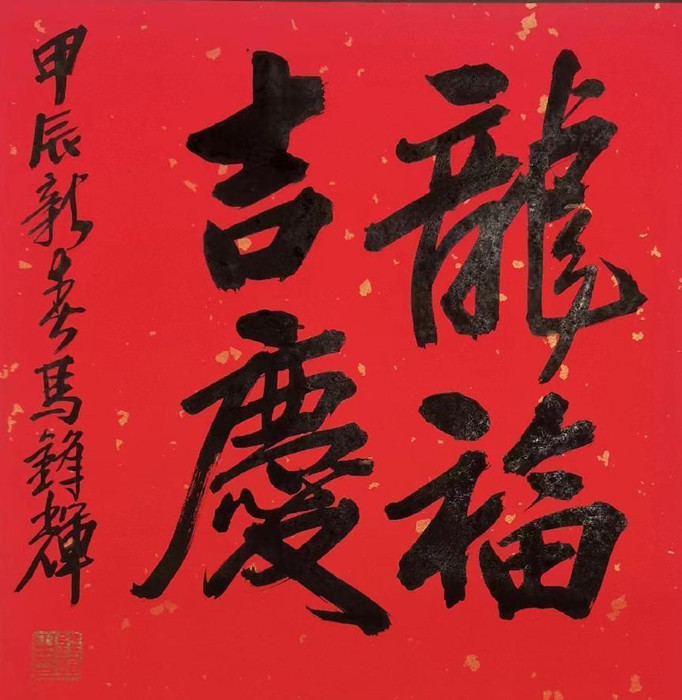 龍福
吉慶
甲辰新春馬鋒輝